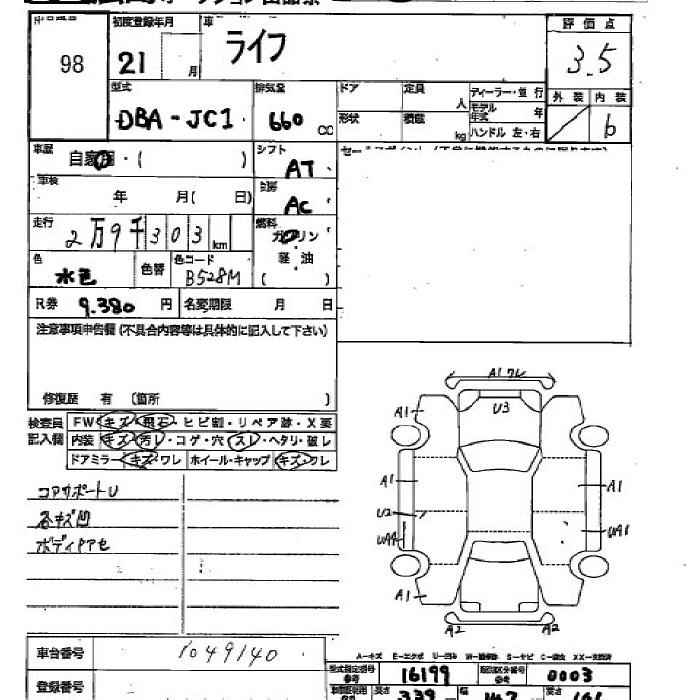 98
初度登録年月
21 月
車
ライフ
評価点
3.5
外装 内装
b
型式
DBA-JC1
排気量
660 cc
ドア
定員
人
形状
積載
kg
ディーラー・並行
モデル年式 年
ハンドル 左・右
車歴
自家用・( )
シフト
AT
車検
年 月( 日)
AC
走行
2万9千303km
燃料
ガソリン
軽油
( )
色
水色
色替
色コード
B528M
R券 9.380 円
名変期限 月 日
注意事項申告欄(不具合内容等は具体的に記入して下さい)
修復歴 有 (箇所 )
検査員
記入欄
FW・キズ・飛石・ヒビ割・リペア跡・X要
内装・キズ・汚レ・コゲ・穴・スレ・ヘタリ・破レ
ドアミラー・キズ・ワレ ホイール・キャップ・キズ・ワレ
コアサポートU
各キズ凹
ボディヤケ色
A1ワレ
U3
A1
A1
A1
U2
UA1
A1
A2
A2
車台番号
1049140
登録番号
A-キズ E-エクボ U-凹み W-補修跡 S-サビ C-腐食 XX-交換済
型式指定番号
16199
類別区分番号
0003
長さ 339
幅 147
高さ